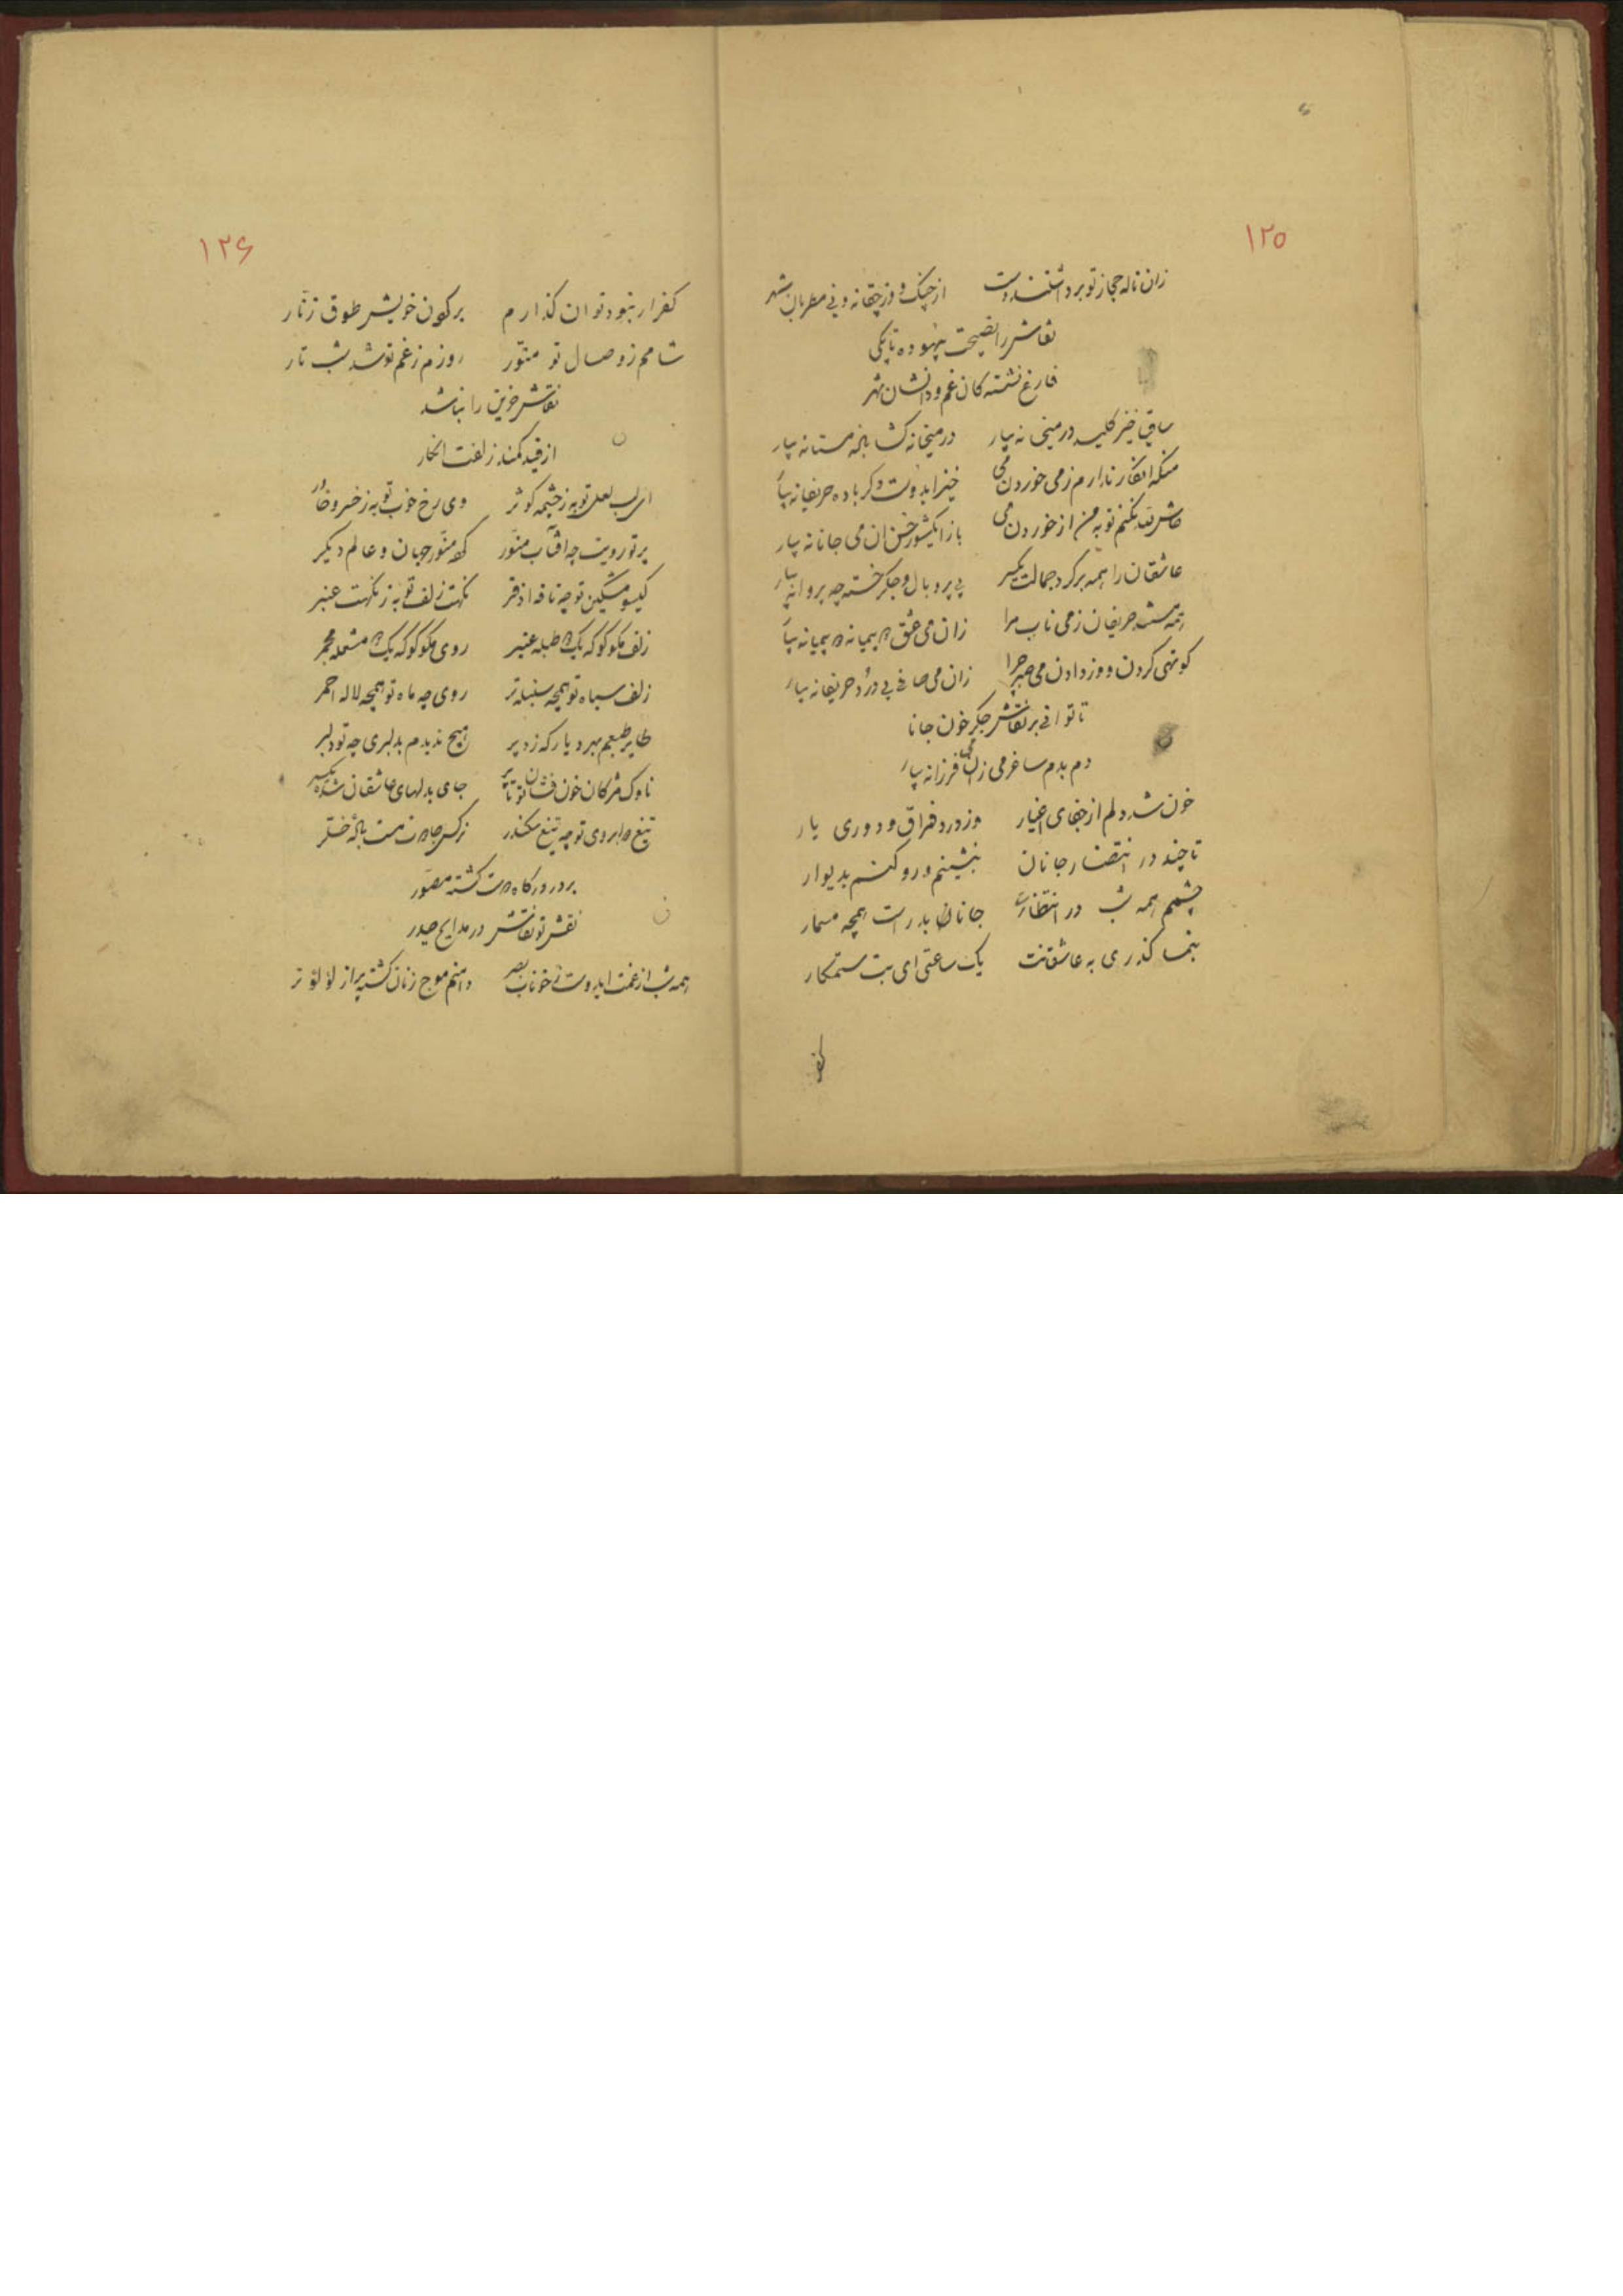 ۱۲۵
زان ناله حجاز تو برداشتند دست از چنگ و ز چغانه و نی مطربان شهر
نقاش را نصیحت بیهوده تا بکی
فارغ نشسته کان غم و دانشان شهر
ساقی خیز کلید در میخانه بیار در میخانه گشا باده مستانه بیار
منکه انکار ندارم ز می خوردن می خیز ایدوست دگر باده حریفانه بیار
نکنم توبه من از خوردن می باز می جانانه بیار
عاشقان را همه بر گرد جمالت یکسر بی پر و بال و جگر خسته چه پروانه بیار
همه مست حریفان ز می ناب مرا زان می عشق پیمانه پیمانه بیار
کوتهی کردن و وز دادن می چرا زان می صافی بی درد حریفانه بیار
تا توانی بر نقاش جگر خون جانا
دم بدم ساغر می زان می فرزانه بیار
خون شد دلم از جفای اغیار وز درد فراق و دوری یار
تا چند در انتضار جانان بنشینم و رو کنم بدیوار
چشمم همه شب در انتظارت جانان بدرت همچه مسمار
بنما گذری به عاشقانت یک ساعتی ای بت ستمکار
کفر
۱۲۶
کفر ار نبود توان گذارم بر گردن خویش طوق زنّار
شامم ز وصال تو منوّر روزم ز غم تو شد شب تار
نقاش حزین را نباشد
از قید کمند زلفت انکار
ای لب لعل تو به ز چشمه کوثر وی رخ خوب تو به ز خسرو خاور
پرتو رویت چه افتاب منوّر منوّر جهان و عالم دیگر
گیسو مشگین تو چه نافه اذفر نکهت زلف تو به ز نکهت عنبر
زلف مگو گو که یک طبله عنبر روی مگو گو که یک مشعله مجمر
زلف سیاه تو همچه سنبله تر روی چه ماه تو همچه لاله احمر
طایر طبعم بهر دیار که زد پر هیچ ندیدم بدلبری چه تو دلبر
ناوک مژگان خون فشان تو تا پر جای بدلهای عاشقان شده یکسر
تیغ دو ابروی تو چه تیغ سکندر نرگس مست
بر در درگاه گشته مصوّر
نقش تو نقاش در مدایح حیدر
همه شب از غمت ایدوست ز خوناب بصر دامنم موج زنان گشته پر از لؤلؤ تر